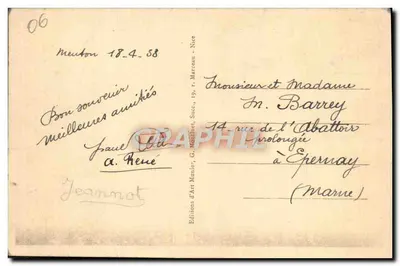 06
Menton 18-4-38
Bon souvenir
meilleures amitiés
A. René
Jeannot
Editions d'Art Munier,
19, r. Marceau - Nice
Monsieur et Madame
M. Barrey
14 rue de l'Abattoir
prolongée
à Epernay
(Marne)